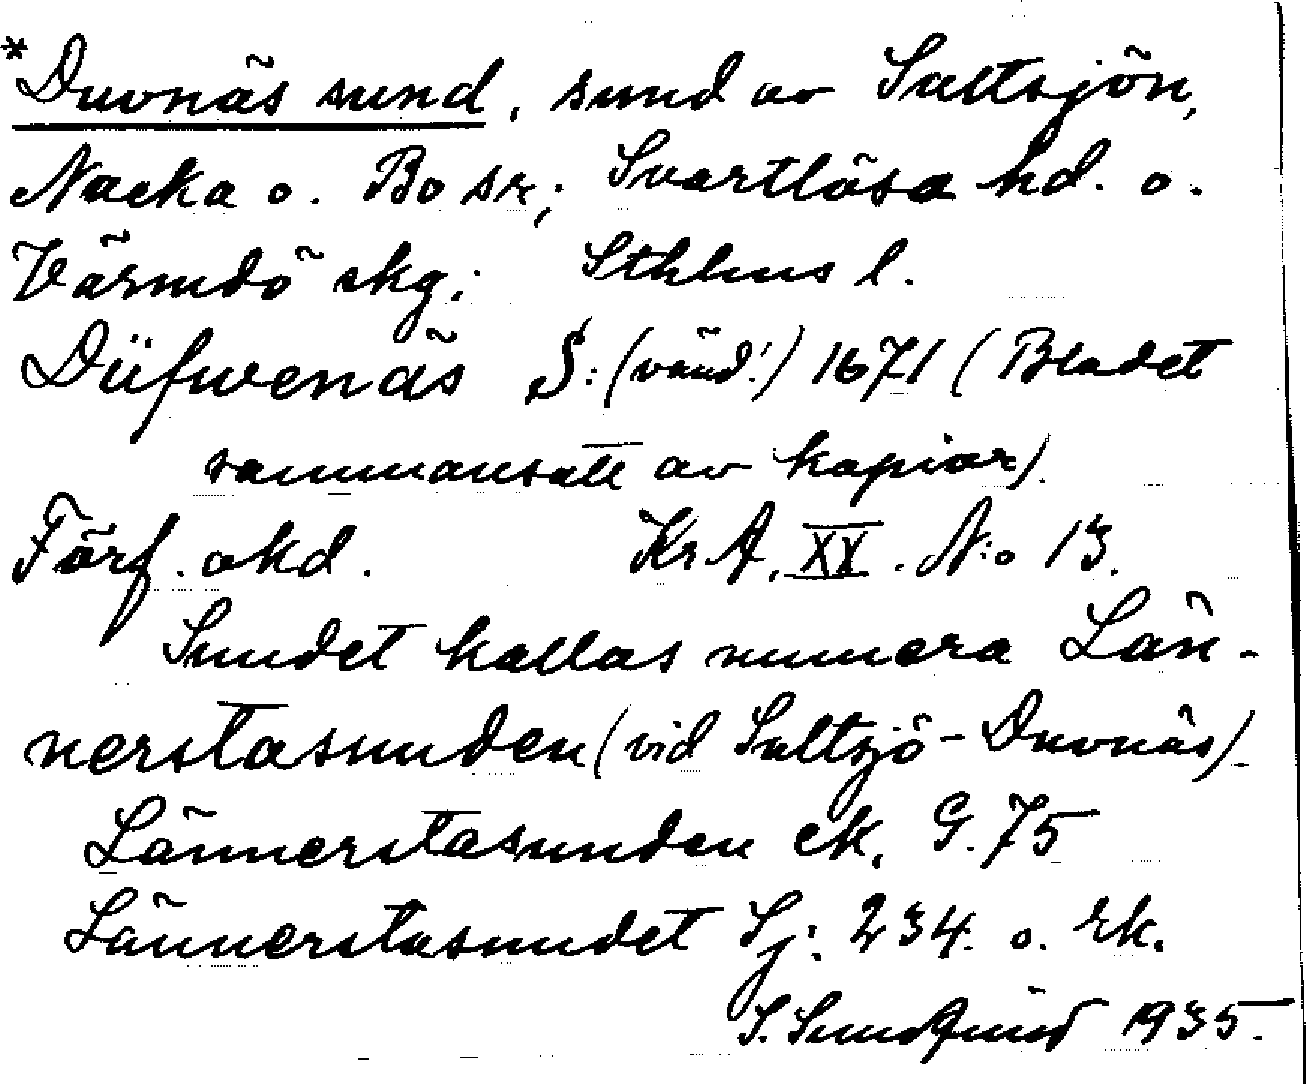 *Duvnäs sund, sund av Saltsjön,
Nacka o. Bo sr; Svartlösa hd. o.
Värmdö skg; Sthlms l.
Düfwenäs S: (vänd!) 1671 (Bladet
sammansatt av kopior).
Förf. okd. Kr. A. XX. N:o 13.
Sundet kallas numera Län-
nerstasunden (vid Saltsjö-Duvnäs).
Lännerstasunden ek. G. 75
Lännerstasundet Sj: 234. o. rk.
S. 1935.